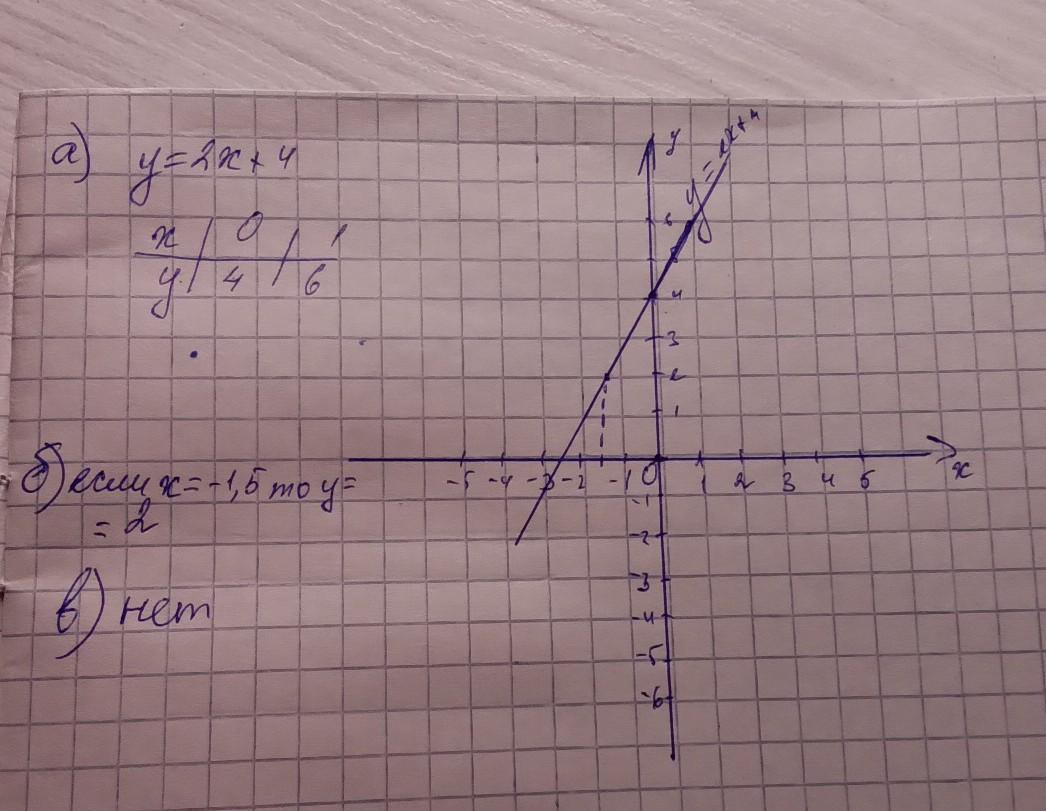 а) y=2x+4
x | 0 | 1
y | 4 | 6
б) если x=-1,5 то y=
= 2
в) нет
y
y=2x+4
6
5
4
3
2
1
-5 -4 -3 -2 -1 0 1 2 3 4 5 x
-1
-2
-3
-4
-5
-6